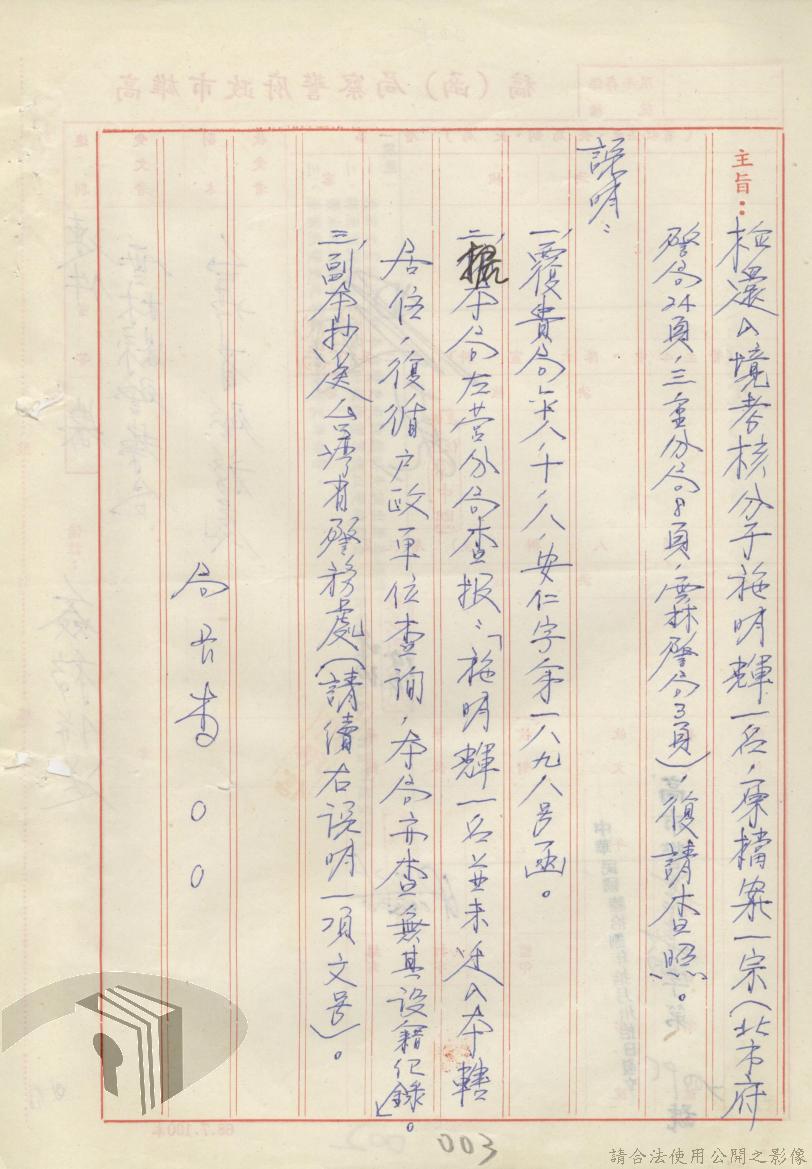 主旨：檢還入境考核分子施明輝一名，原檔案一宗（北市府
警局24頁，三重分局8頁，雲林警局3頁），復請查照。
說明：
一、覆貴局八、十、八、安仁字第一八九八号函。
二、據本局左营分局查报：「施明輝一名並未迁入本轄
居住，復循户政单位查詢，本局亦查無其設籍纪錄」。
三、副本抄送台湾省警務處（請續右説明一項文号）。
局长李○○
003
請合法使用公開之影像